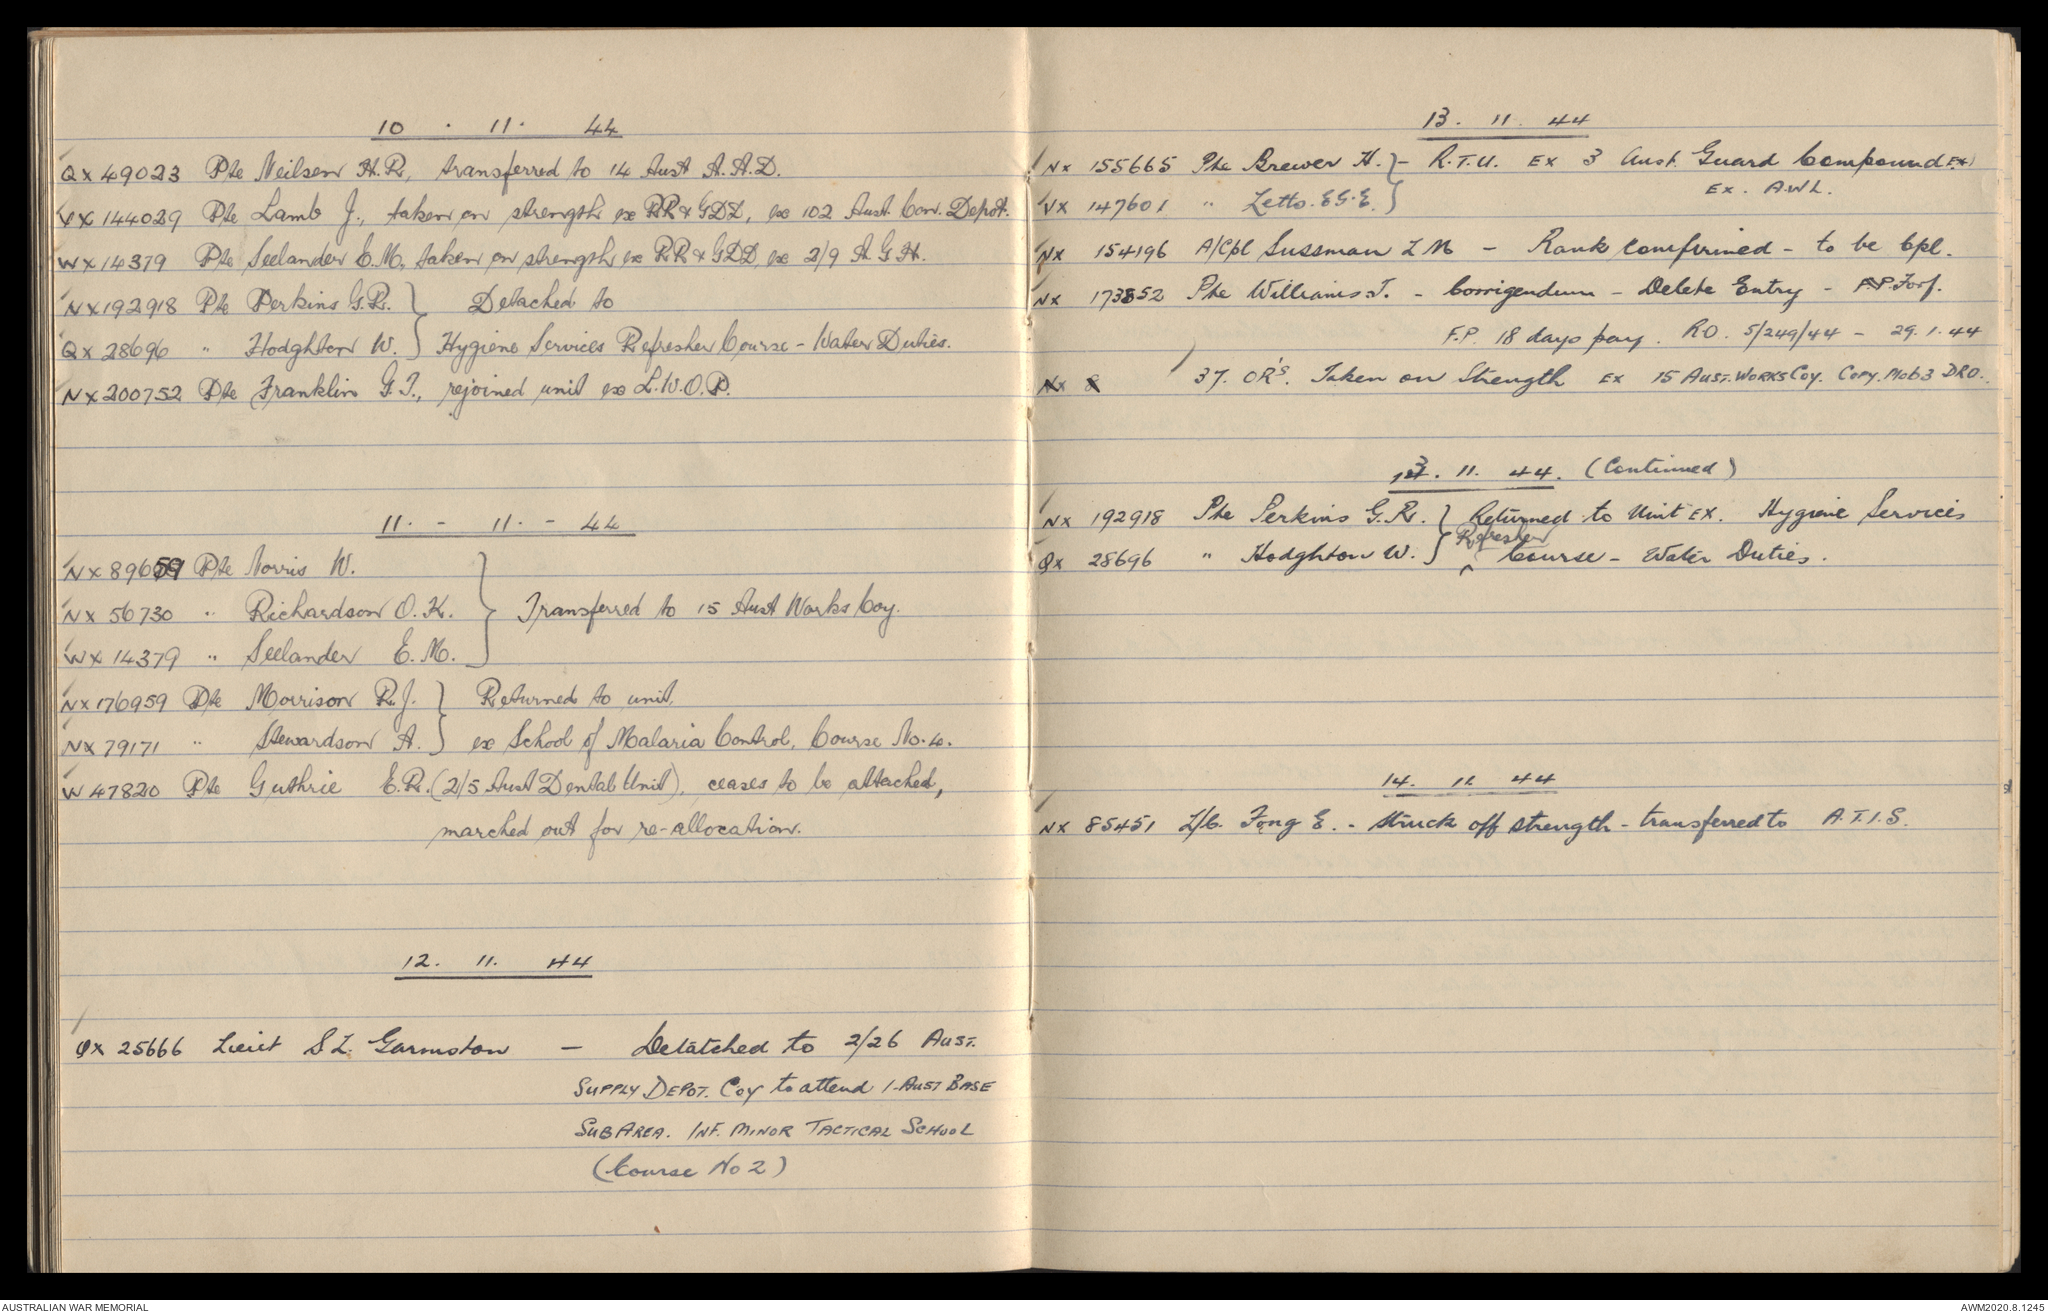 10 . 11. 44
QX 49023 Pte Neilsen H.R., transferred to 14 Aust A.A.D.
VX 144029 Pte Lamb J., taken on strength ex RR & GDD, ex 102 Aust. Con. Depot.
WX 14379 Pte Seelander E.M., taken on strength ex RR & GDD, ex 2/9 A.G.H.
NX 192918 Pte Perkins G.R. } Detached to
QX 28696 " Hodghton W. } Hygiene Services Refresher Course - Water Duties.
NX 200752 Pte Franklin G.T., rejoined unit ex L.W.O.P.
11. - 11. - 44
NX 89659 Pte Norris W.
NX 56730 " Richardson O.K. } Transferred to 15 Aust Works Coy.
WX 14379 " Seelander E.M.
NX 176959 Pte Morrison R.J. } Returned to unit,
NX 79171 " Stewardson A. } ex School of Malaria Control, Course No. 4.
W 47820 Pte Guthrie E.R. (2/5 Aust Dental Unit), ceases to be attached,
marched out for re-allocation.
12. 11. 44
QX 25666 Lieut S L Garmston - Detatched to 2/26 Aust.
Supply Depot. Coy to attend 1 Aust Base
Sub Area. Inf. Minor Tactical School
(Course No 2)
13. 11 44
NX 155665 Pte Brewer H. } - R.T.U. Ex 3 Aust. Guard Compound Ex)
VX 147601 " Letts. E G.E. } Ex. A.W L.
NX 154196 A/Cpl Sussman L M - Rank comfirmed - to be Cpl.
NX 173852 Pte Williams J. - Corrigendum - Delete Entry - F.P. Forf.
F.P. 18 days pay. RO. 5/249/44 - 29.1.44
37. OR's. Taken on Strength Ex 15 Aust. Works Coy. Copy. Mob 3 DRO.
13. 11. 44. (Continued)
NX 192918 Pte Perkins G.R. } Returned to Unit Ex. Hygiene Services
QX 28696 " Hodghton W. } Refresher Course - Water Duties.
14. 11 44
NX 85451 L/C. Fong E. - Struck off strength - transferred to A.T.I.S.
AUSTRALIAN WAR MEMORIAL
AWM2020.8.1245